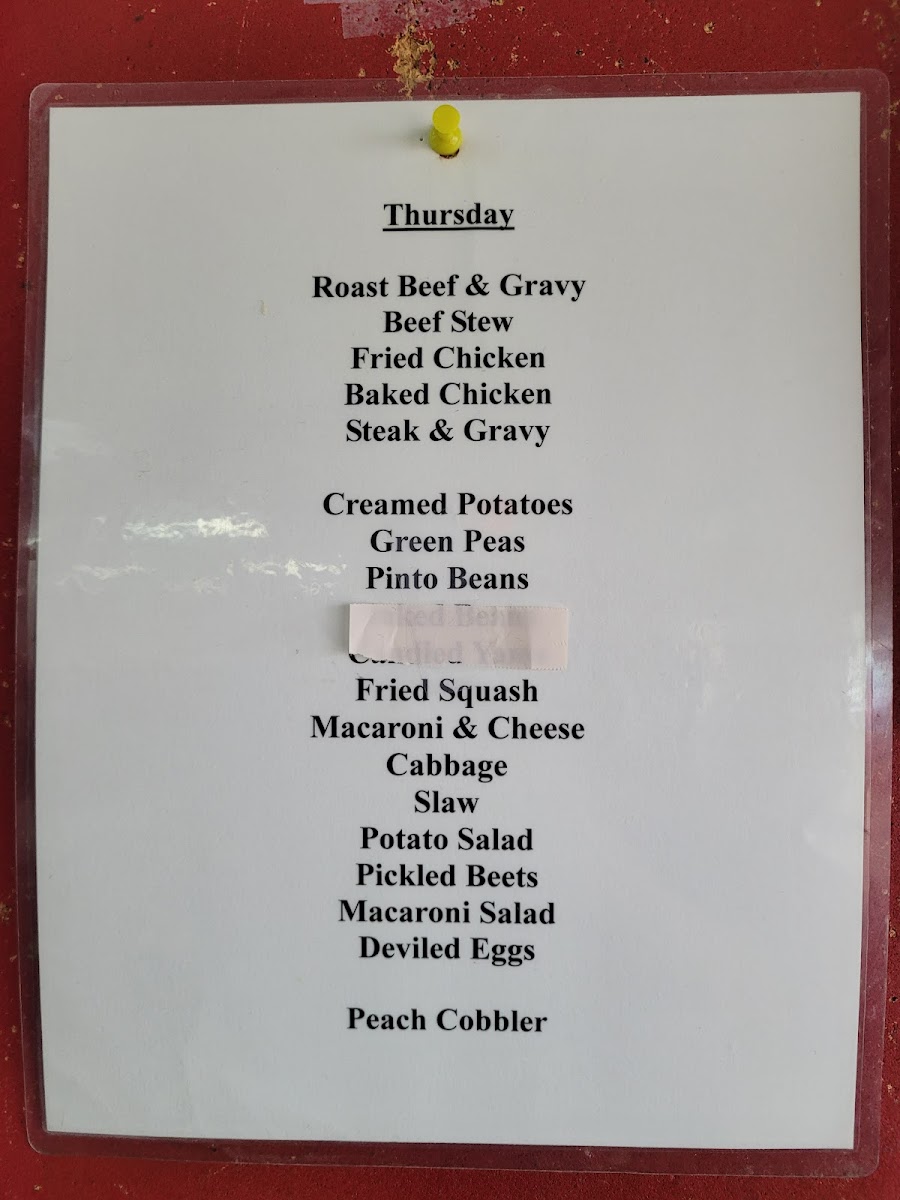 Thursday
Roast Beef & Gravy
Beef Stew
Fried Chicken
Baked Chicken
Steak & Gravy
Creamed Potatoes
Green Peas
Pinto Beans
Candied Yams
Fried Squash
Macaroni & Cheese
Cabbage
Slaw
Potato Salad
Pickled Beets
Macaroni Salad
Deviled Eggs
Peach Cobbler